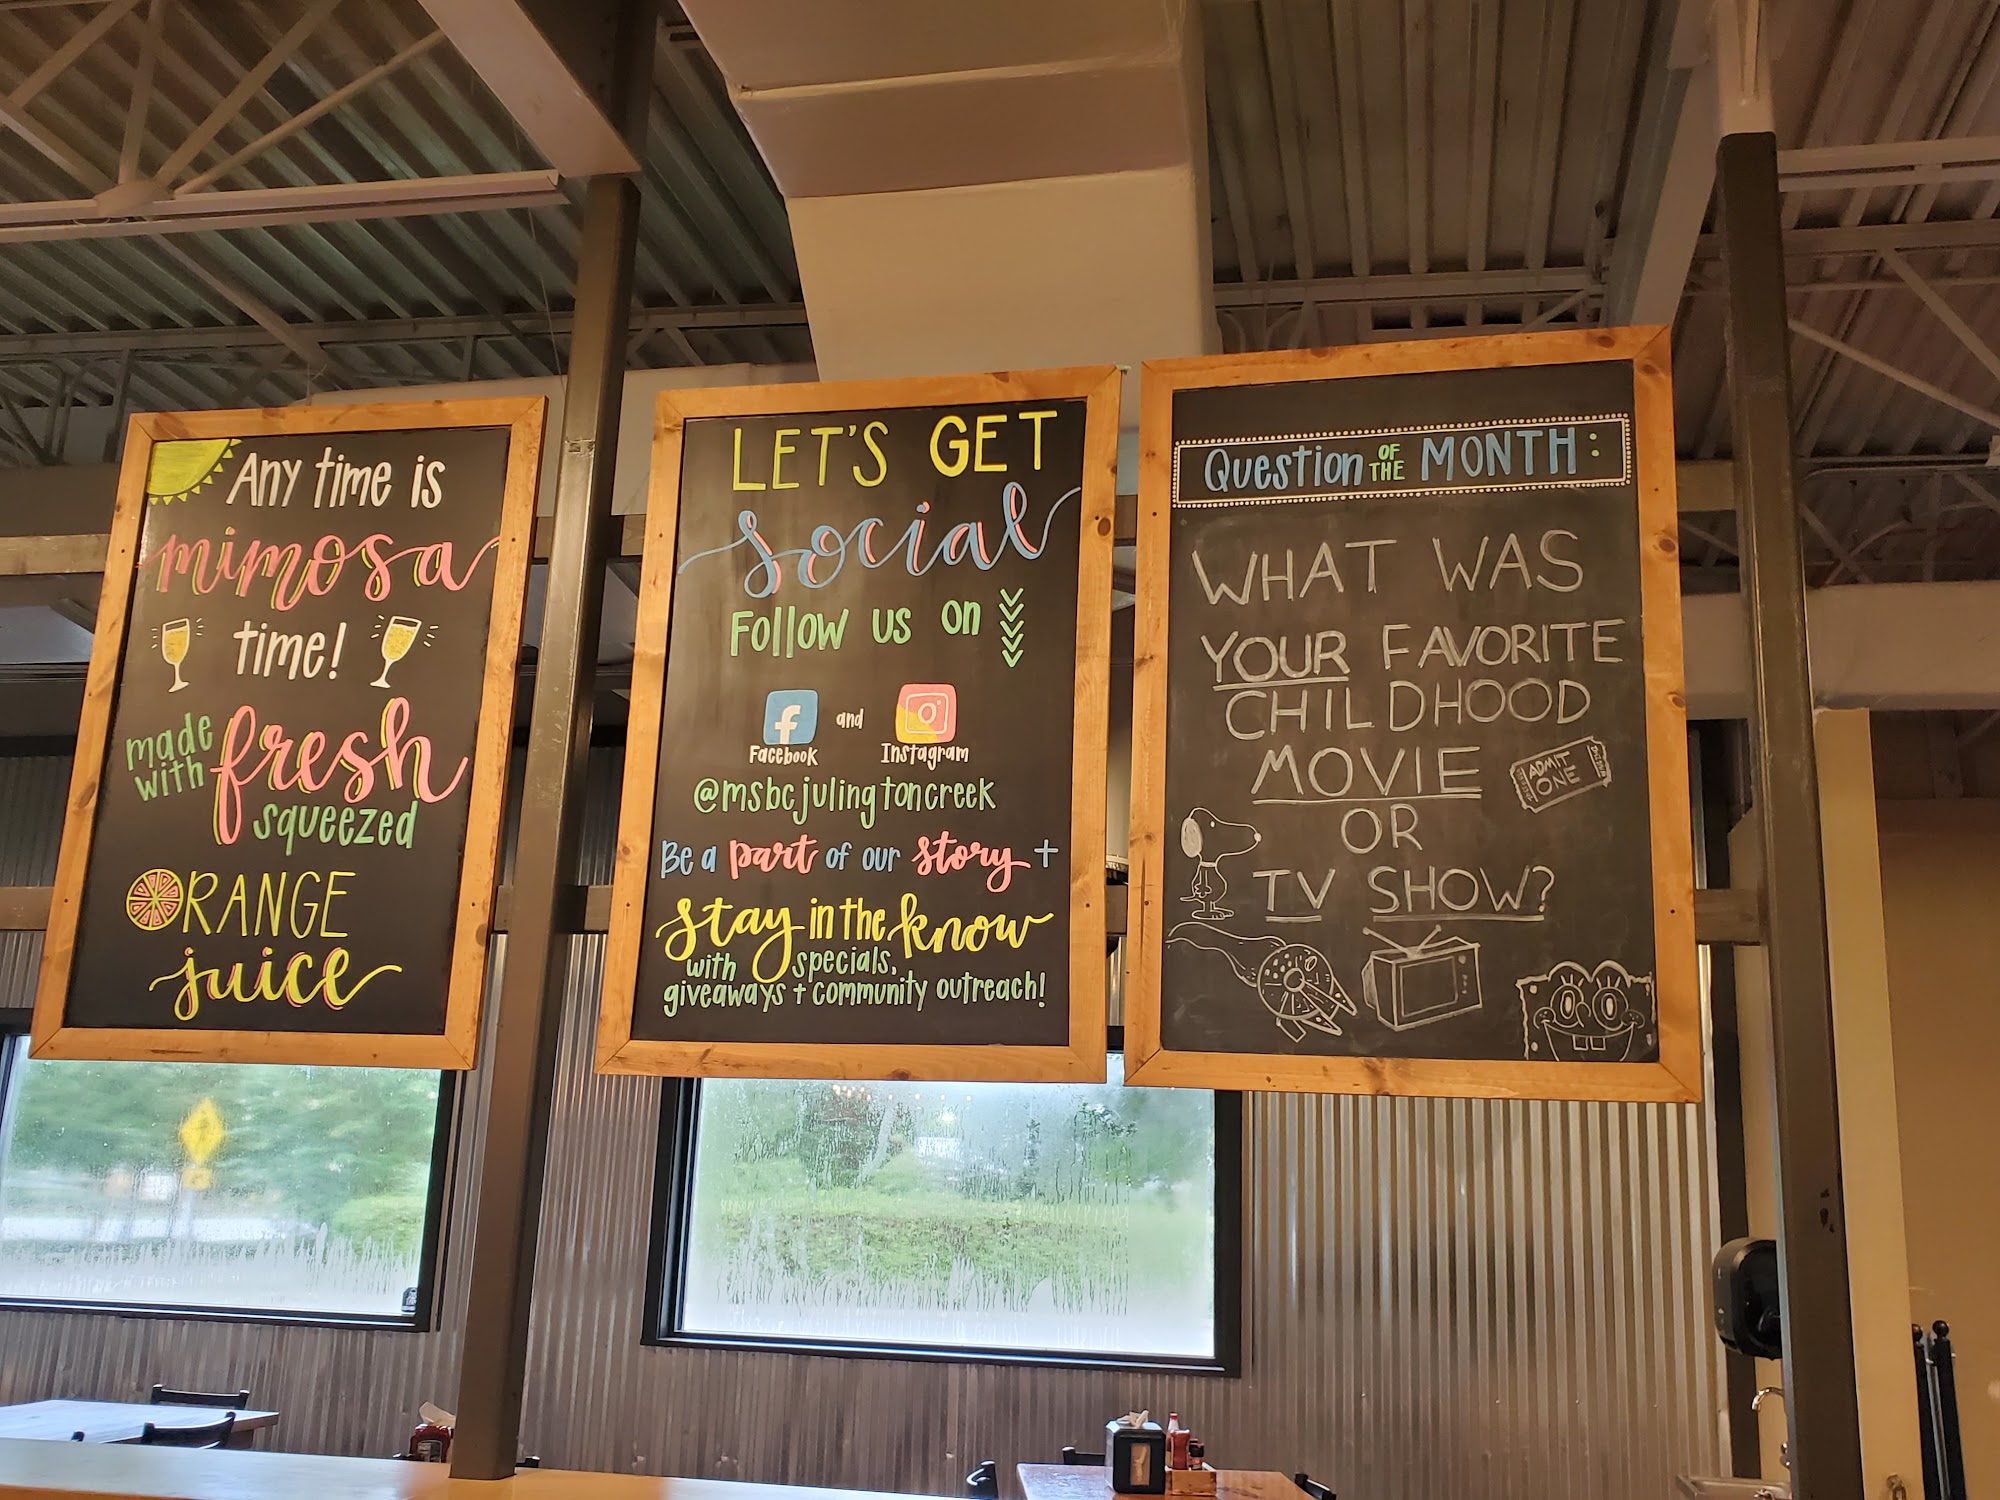 Any time is
mimosa
time!
made
with fresh
squeezed
ORANGE
juice
LET'S GET
social
Follow us on
and
Facebook Instagram
@msbcjulingtoncreek
Be a part of our story +
stay in the know
with specials,
giveaways + community outreach!
Question OF THE MONTH:
WHAT WAS
YOUR FAVORITE
CHILDHOOD
MOVIE
ADMIT
ONE
OR
TV SHOW?